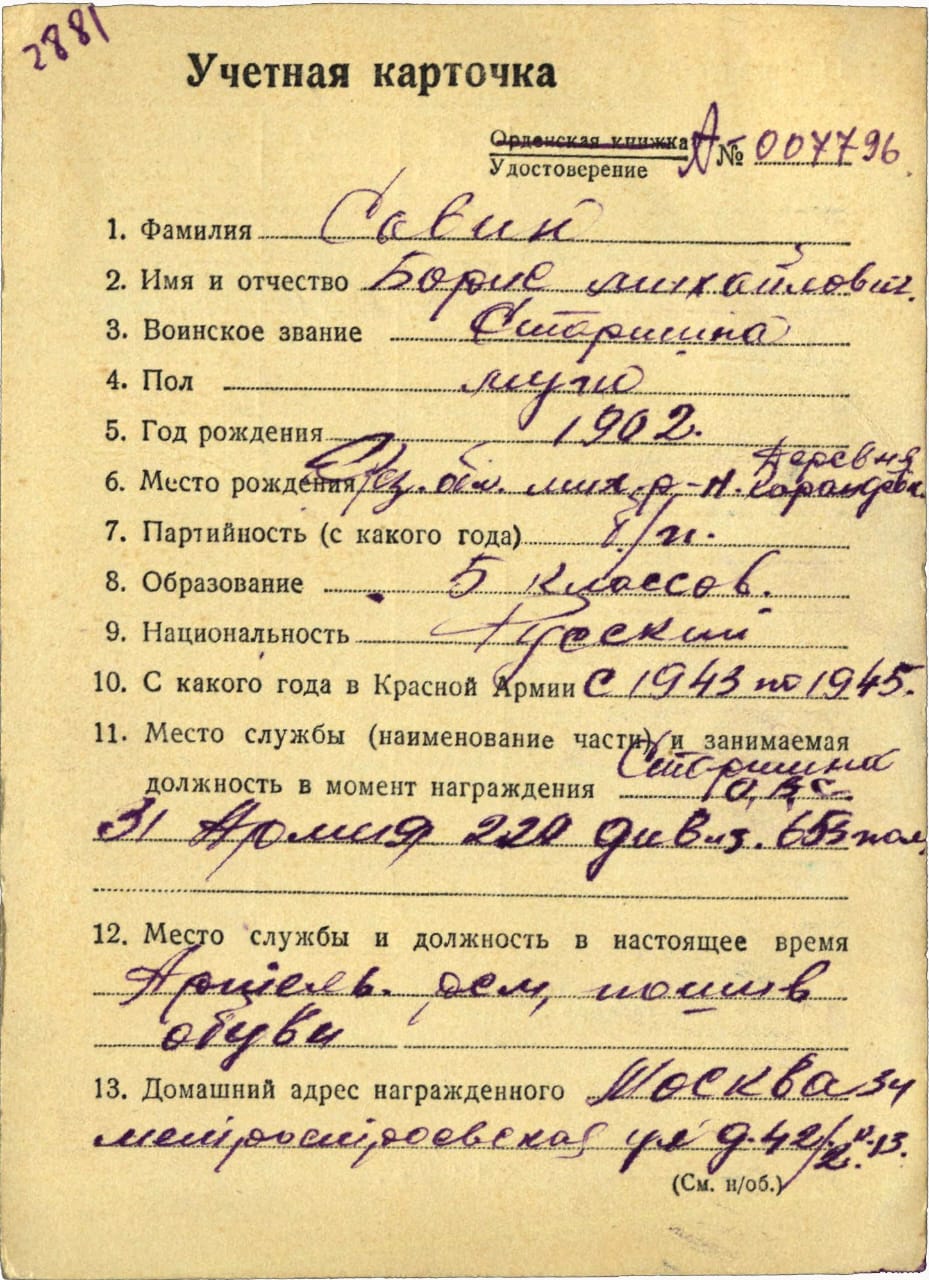 2881
Учетная карточка
Орденская книжка А № 007796
Удостоверение
1. Фамилия Савин
2. Имя и отчество Борис Михайлович.
3. Воинское звание Старшина
4. Пол муж
5. Год рождения 1902.
деревня
6. Место рождения Ряз. обл. мих. р-н.
7. Партийность (с какого года) б/п.
8. Образование 5 классов.
9. Национальность Русский
10. С какого года в Красной Армии С 1943 по 1945.
11. Место службы (наименование части) и занимаемая
должность в момент награждения Старшина
31 Армия 220 дивиз. 653 пол,
12. Место службы и должность в настоящее время
Артель. рем, пошив
обуви
13. Домашний адрес награжденного Москва 34
метростроевская ул д. 42/2. к. 13.
(См. н/об.)